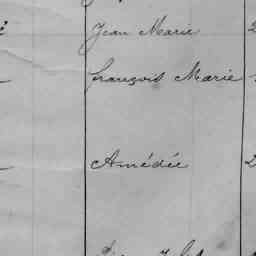 Jean Marie 2
François Marie
Amédée 2